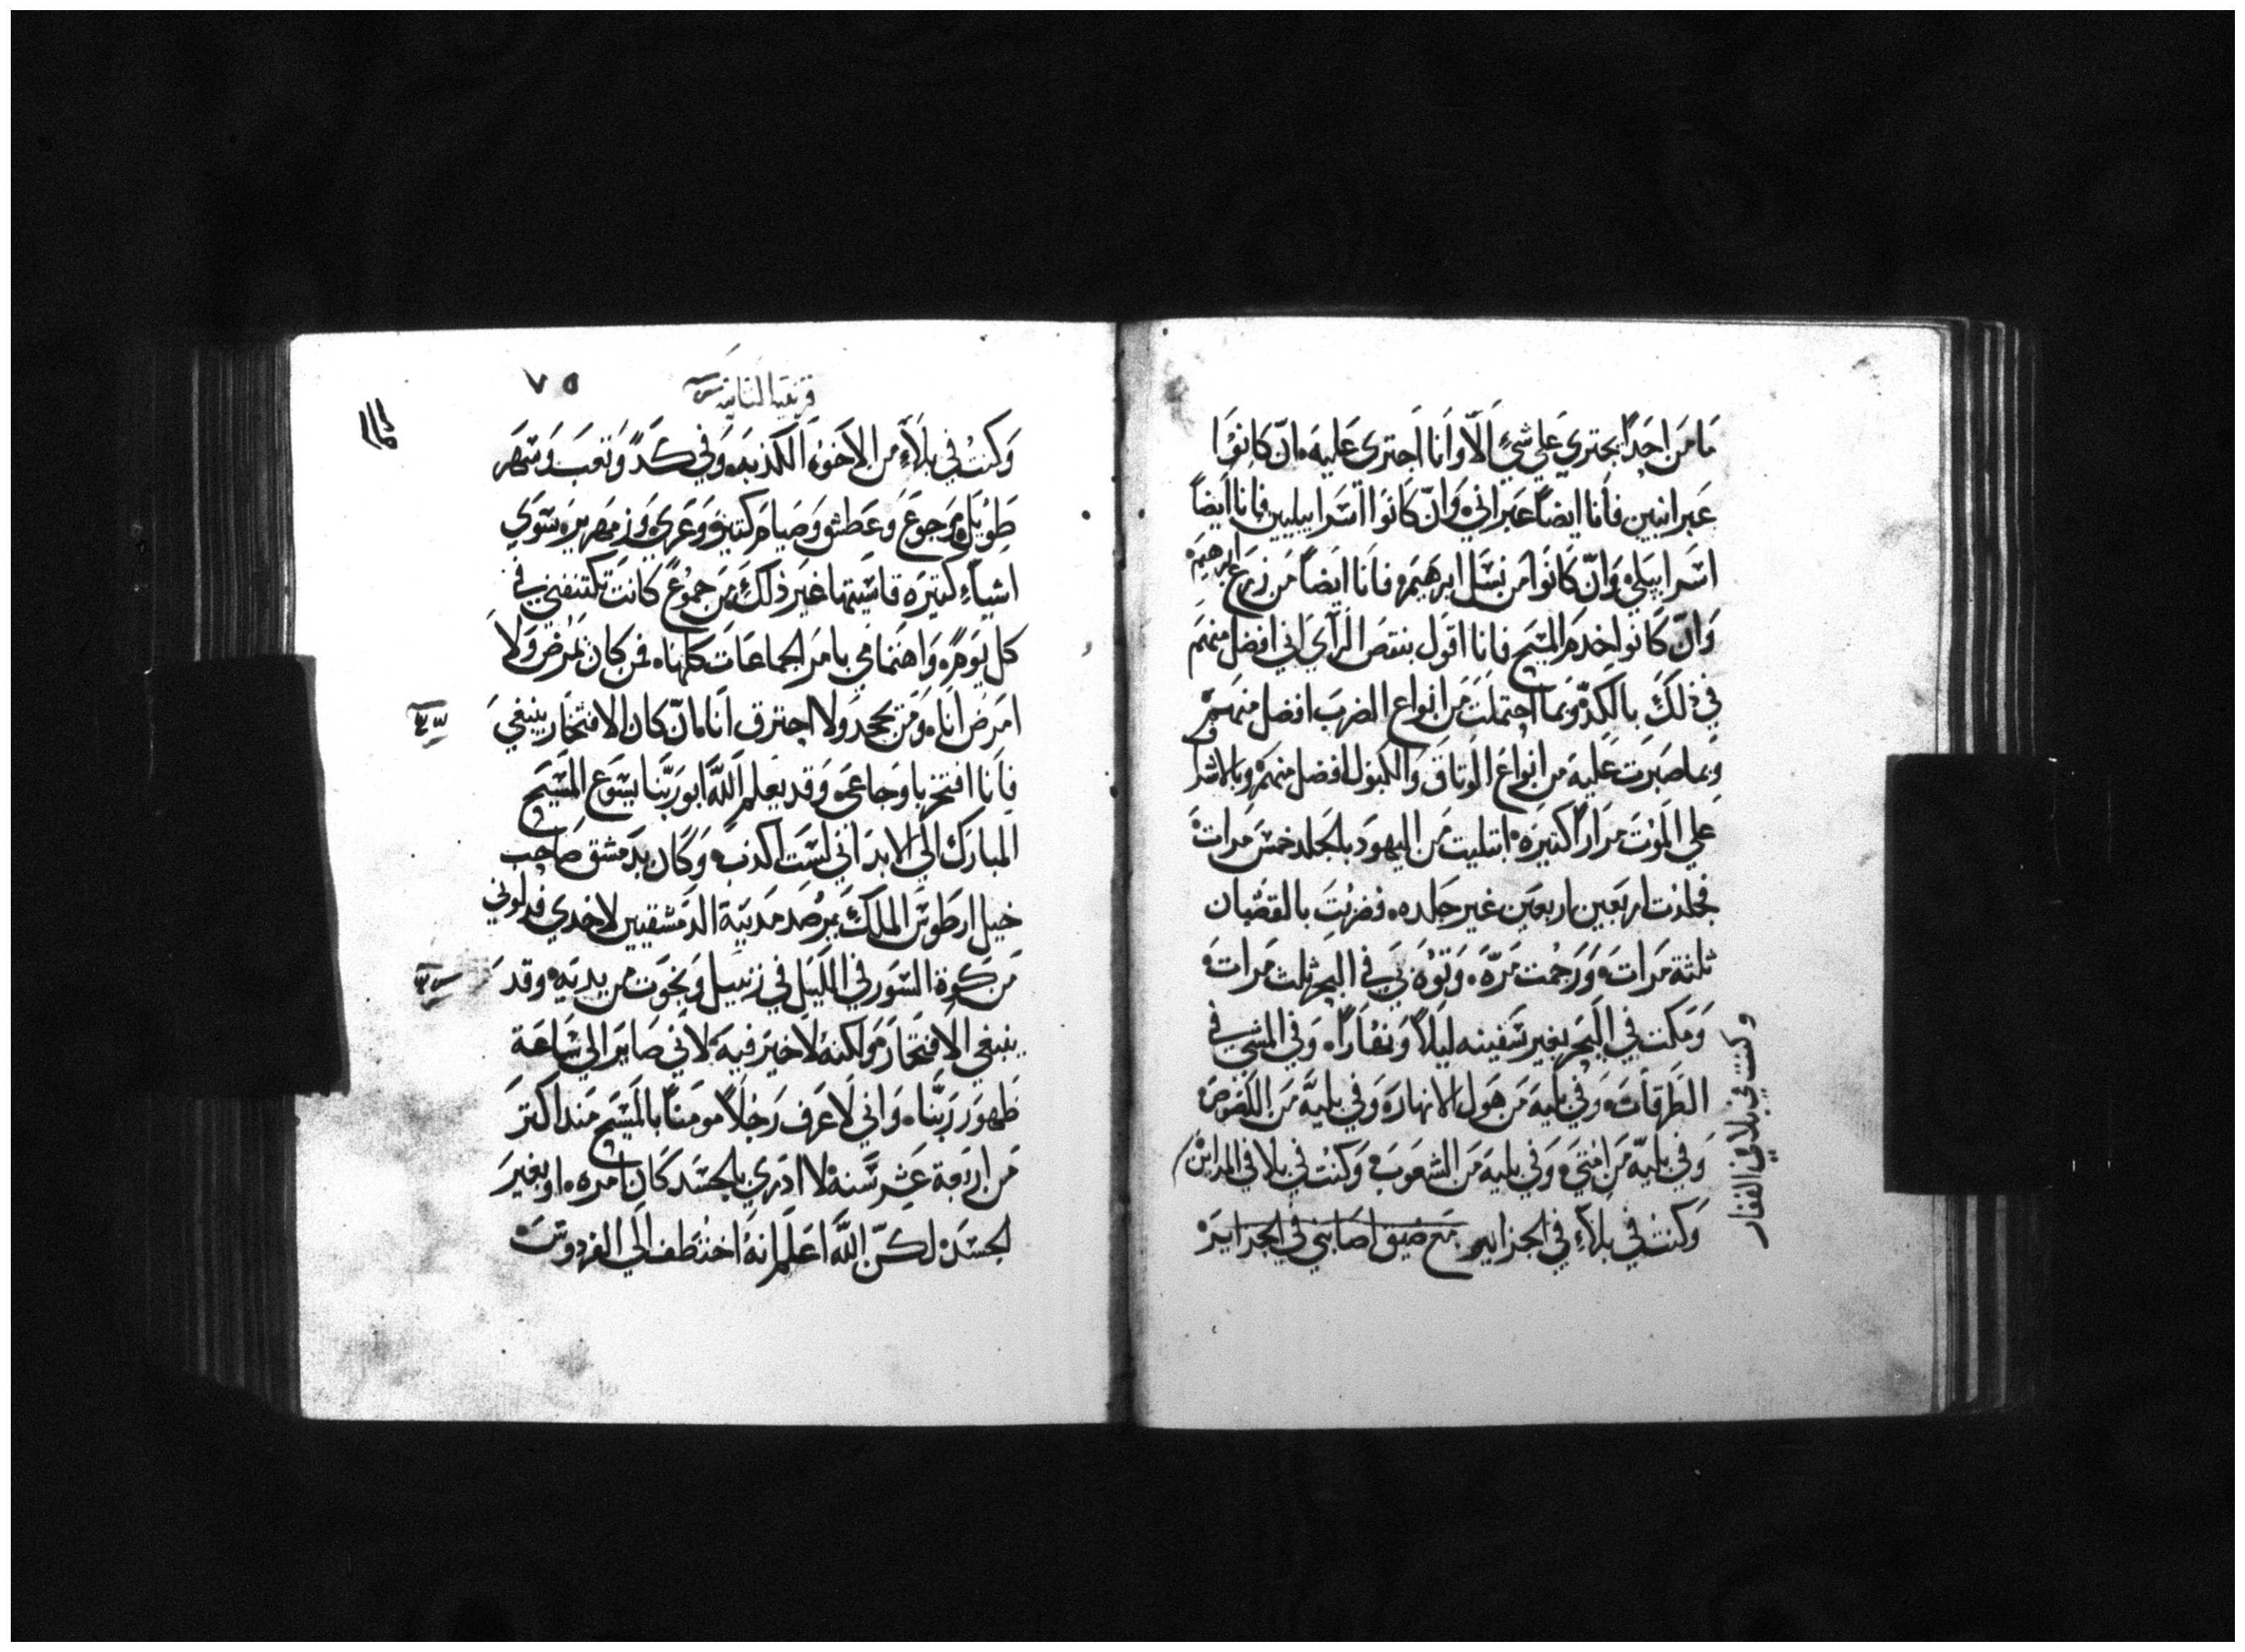 مَا مَن احَداً يجتري عَلي شيٍ الاّ وَانا اَجتري عَليه، ان كانوا
عَبرانيين فأنا ايضاً عَبراني، وَانّ كانوا اسَراييليين فانا ايضاً
اسَراييلي، وَانّ كَانوا مَن نسَل ابرهَيمَ، فانا ايضاً مَن زرع ابرهيم
وَانّ كَانوا خدمَ المسَيح فانا اقول بنقصَ الرآي اني افضل منهمَ
في ذلكَ بالكدّ، وَبما احتملت مَن انواع الضربَ افضل منهمَ، و
وبما صَبرت عَليه من انواعَ الوثاق وَالكبول افضل منهمَ، وبالاشرا
عَلي الموَت مَراراً كثيرَه، ابتليت مَن اليهودَ بالجلد خمسَ مَرات،
فجلدت اربعَين اربعَين غير جَلده، فضربت بالقضبان
ثلثة مَرات، وَرَجمت مَرّه، وَتوه بَي في البحر ثلث مَرات،
وَمَكثت في البحَر بغير سَفينه ليلاً وَنهاراً، وَفي المشي في
الطَرقات، وَفي بليه مَن هَول الانهار، وَفي بليَّه مَن اللصوصَ،
وَفي بليّه مَن امَتي، وَفي بليه مَن الشعَوبَ، وَكنت في بلا في المداين،
وكنت في بلاء في القفار
وَكنت في بلآءِ في الجزاير مَع ضيق اصَابني في الجزايرَ،
قرنتيه الثانيه
٧٥
وَكنت في بلآءٍ من الاخوَه الكذبه، وَفي كَدّ وَتعَبَ وَسَهَر
طَويل، وَجوعَ وَعَطش وَصَيام كثير، وَعَري، وَزمَهرير، سَوَي
اشياءٍ كثيرَه قاسَيتها غيَر ذلكَ، مَن جموُعً كانَت تكتنفني في
كل يوَم، وَاهَتمامي بامَر الجماعَات كلها، فمن كان يَمرض وَلا
امَرض انا، وَمَن يجحد وَلا احترق انا، انّ كان الافتخار ينبغي
فانا افتخر باوَجاعَي، وَقد يعَلم اللَّه ابو رَبّنا يسَوع المسَيح
المبارَك الي الابد اني لسَت اكذب، وَكان بدمشق صَاحب
خيل ارطوسَ الملكَ يرصد مَدينة الدمَشقيين لاخدي فدلوني
مَن كوة السَور في الليَل في زنبيل وَنجوَت من يديَه، وقد
ينبغي الافتخارَ، وَلكنهُ لا خيَر فيه، لاني صَاير الي سَاعَة
ظهور رَبّنا، وَاني لاعَرف رَجلاً مومَناً بالمسَيح مَند اكترَ
مَن ارَبعَة عَشر سَنه، لا ادَري بالجسَد كَان امره، او بغيرَ
الجسَد، لكنّ اللَّه اعَلم انهُ اختطف الي الفردوسَ،